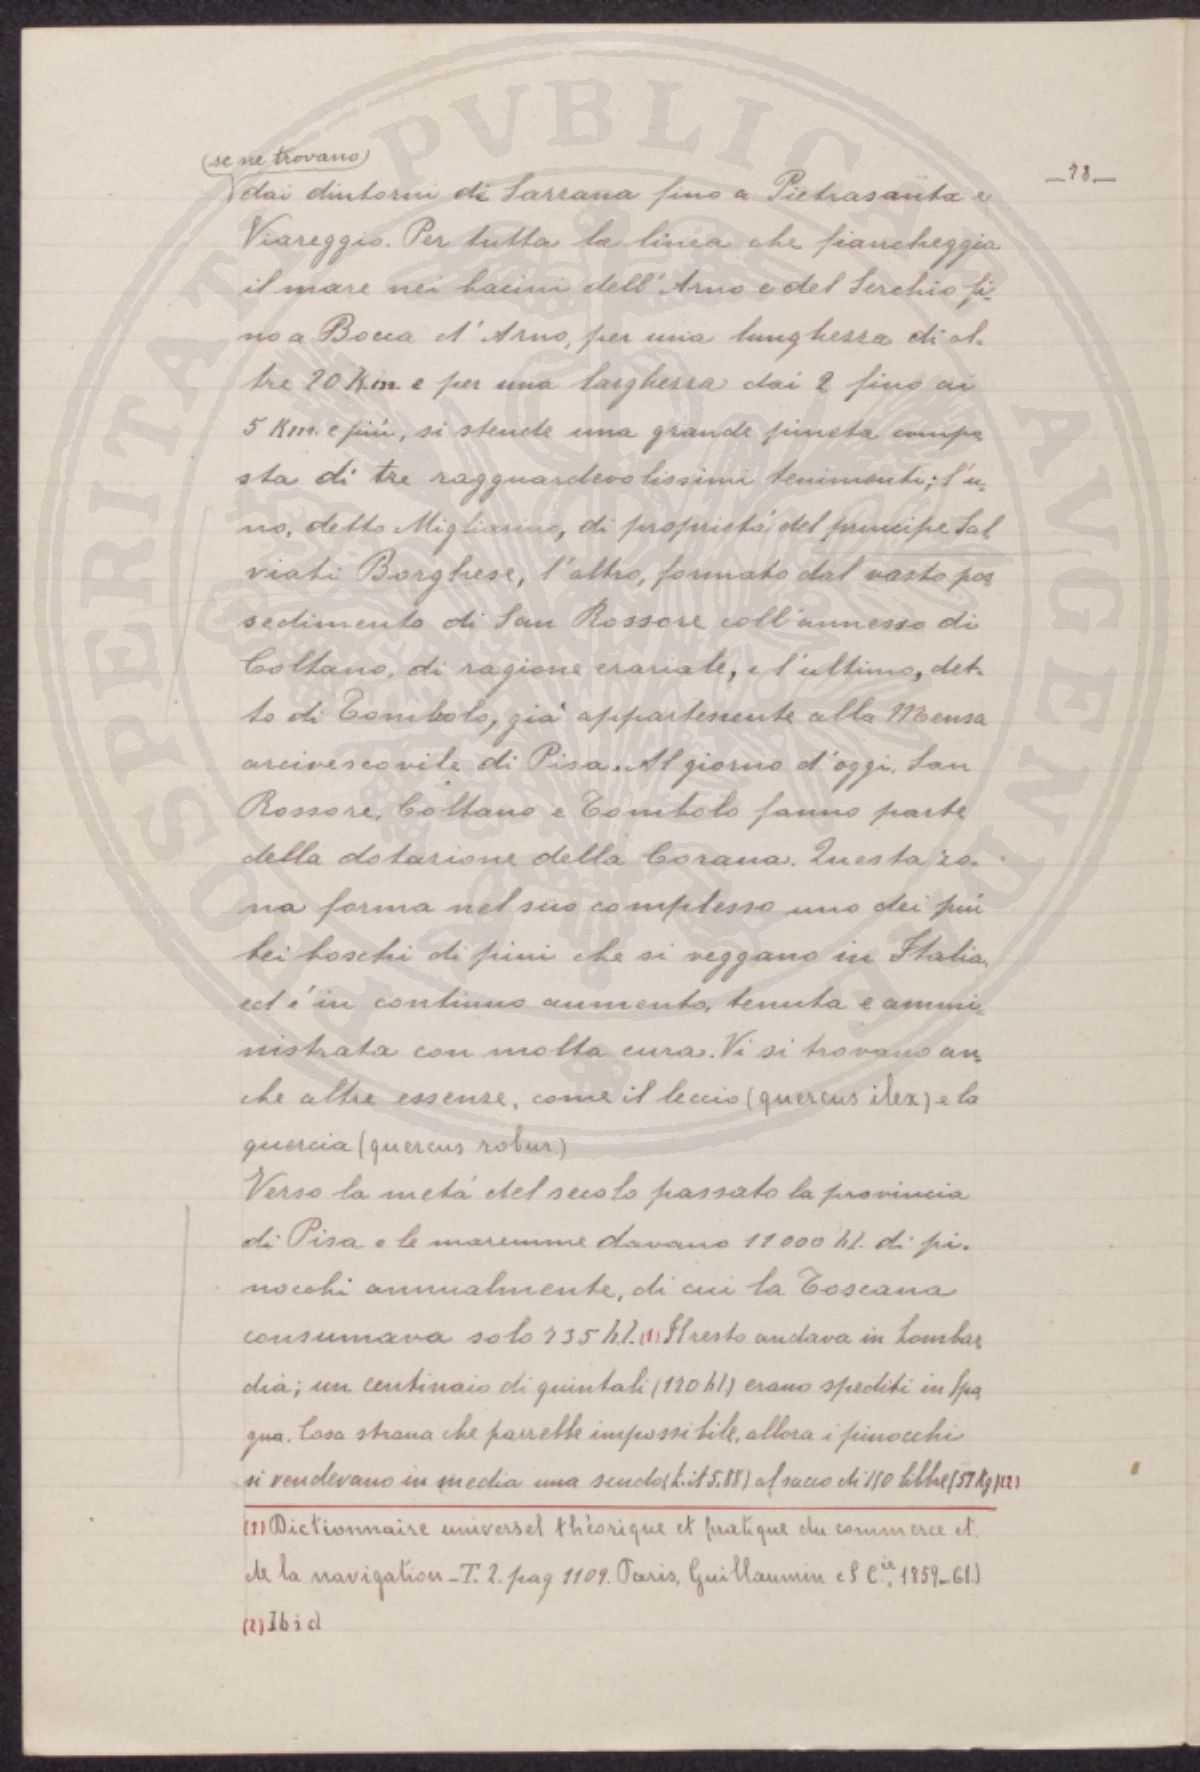 (se ne trovano)
— 78 —
dai dintorni di Sarzana fino a Pietrasanta e
Viareggio. Per tutta la linea che fiancheggia
il mare nei bacini dell'Arno e del Serchio fi-
no a Bocca d'Arno, per una lunghezza di ol-
tre 20 Km. e per una larghezza dai 2 fino ai
5 Km. e più, si stende una grande pineta compo
sta di tre ragguardevolissimi tenimenti; l'u-
no, detto Migliarino, di proprietà del principe Sal
viati Borghese, l'altro, formato dal vasto pos
sedimento di San Rossore coll'annesso di
Coltano, di ragione erariale, e l'ultimo, det-
to di Tombolo, già appartenente alla Mensa
arcivescovile di Pisa. Al giorno d'oggi, San
Rossore, Coltano e Tombolo fanno parte
della dotazione della Corona. Questa zo-
na forma nel suo complesso uno dei più
bei boschi di pini che si veggano in Italia,
ed è in continuo aumento, tenuta e ammi-
nistrata con molta cura. Vi si trovano an-
che altre essenze, come il leccio (quercus ilex) e la
quercia (quercus robur)
Verso la metà del secolo passato la provincia
di Pisa e le maremme davano 11000 hl. di pi-
nocchi annualmente, di cui la Toscana
consumava solo 735 hl. (1) Il resto andava in Lombar
dia; un centinaio di quintali (120 hl) erano spediti in Spa
gna. Cosa strana che parrebbe impossibile, allora i pinocchi
si vendevano in media uno scudo (L. it 5.88) al sacco di 150 libbre (51 Kg) (2)
(1) Dictionnaire universel théorique et pratique du commerce et
de la navigation - T. 2. pag 1109. Paris, Guillaumin et C.ie, 1859-61.)
(2) Ibid
PUBLICAE
AUGENDAE
PROSPERITATI